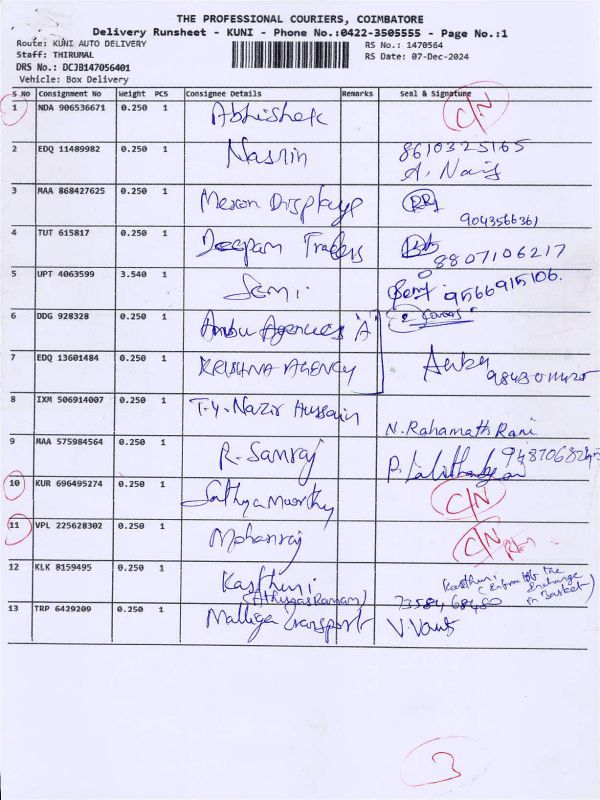 THE PROFESSIONAL COURIERS, COIMBATORE
Delivery Runsheet - KUNI - Phone No.:0422-3505555 - Page No.:1
Route: KUNI AUTO DELIVERY RS No.: 1470564
Staff: THIRUMAL RS Date: 07-Dec-2024
DRS No.: DCJB147056401
Vehicle: Box Delivery
S No Consignment No Weight PCS Consignee Details Remarks Seal & Signature
1 NDA 906536671 0.250 1 Abhishek C/N
2 EDQ 11489982 0.250 1 Nasrin 8610325165
3 MAA 868427625 0.250 1 Display RR
9043566361
4 TUT 615817 0.250 1 Deepam Traders
8807106217
5 UPT 4063599 3.540 1 9566915106.
6 DDG 928328 0.250 1 Ambu Agencies 'A' 2 Covers
7 EDQ 13601484 0.250 1 KRISHNA AGENCY
8 IXM 506914007 0.250 1 T.Y. Nazir Hussain N. Rahamath Rani
9 MAA 575984564 0.250 1 R. Sanraj
10 KUR 696495274 0.250 1 Sathya Moorthy C/N
11 VPL 225628302 0.250 1 Mohanraj C/N
12 KLK 8159495 0.250 1 Kasthuri Kasthuri
7358468480
13 TRP 6429209 0.250 1 Malliga Transport
3